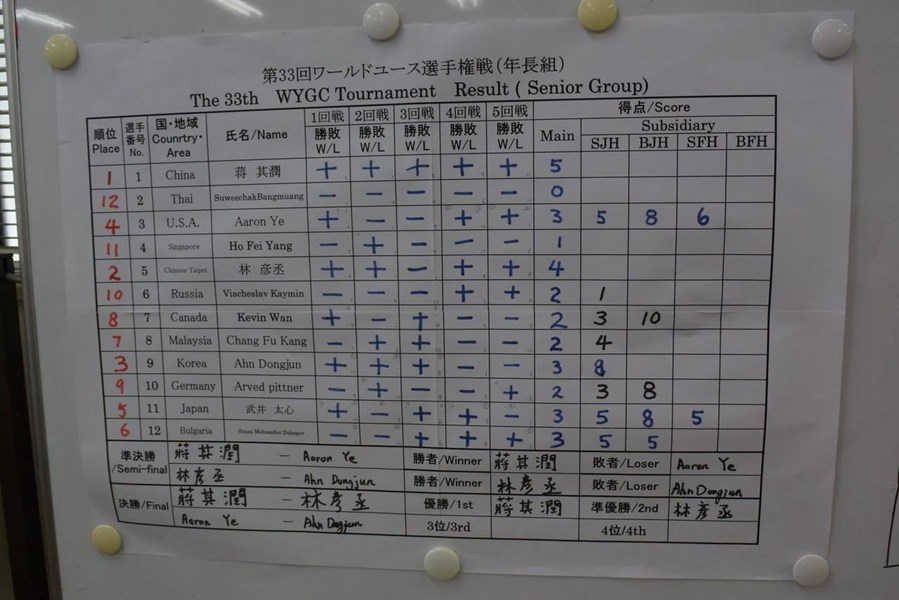 第33回ワールドユース選手権戦(年長組)
The 33th WYGC Tournament Result ( Senior Group)
順位 Place 選手番号 No. 国・地域 Counrtry・Area 氏名/Name 1回戦 勝敗 W/L 2回戦 勝敗 W/L 3回戦 勝敗 W/L 4回戦 勝敗 W/L 5回戦 勝敗 W/L 得点/Score Main Subsidiary SJH BJH SFH BFH
1 1 China 蒋 其潤 + + + + + 5
12 2 Thai SuweechakBangmuang - - - - - 0
4 3 U.S.A. Aaron Ye + - - + + 3 5 8 6
11 4 Singapore Ho Fei Yang - + - - - 1
2 5 Chinese Taipei 林 彦丞 + + - + + 4
10 6 Russia Viacheslav Kaymin - - - + + 2 1
8 7 Canada Kevin Wan + - + - - 2 3 10
7 8 Malaysia Chang Fu Kang - + + - - 2 4
3 9 Korea Ahn Dongjun + + + - - 3 8
9 10 Germany Arved pittner - + - - + 2 3 8
5 11 Japan 武井 太心 + - + + - 3 5 8 5
6 12 Bulgaria - - + + + 3 5 5
準決勝 /Semi-final 蒋其潤 - Aaron Ye 勝者/Winner 蒋其潤 敗者/Loser Aaron Ye
林彦丞 - Ahn Dongjun 勝者/Winner 林彦丞 敗者/Loser Ahn Dongjun
決勝/Final 蒋其潤 - 林彦丞 優勝/1st 蒋其潤 準優勝/2nd 林彦丞
Aaron Ye - Ahn Dogjun 3位/3rd 4位/4th